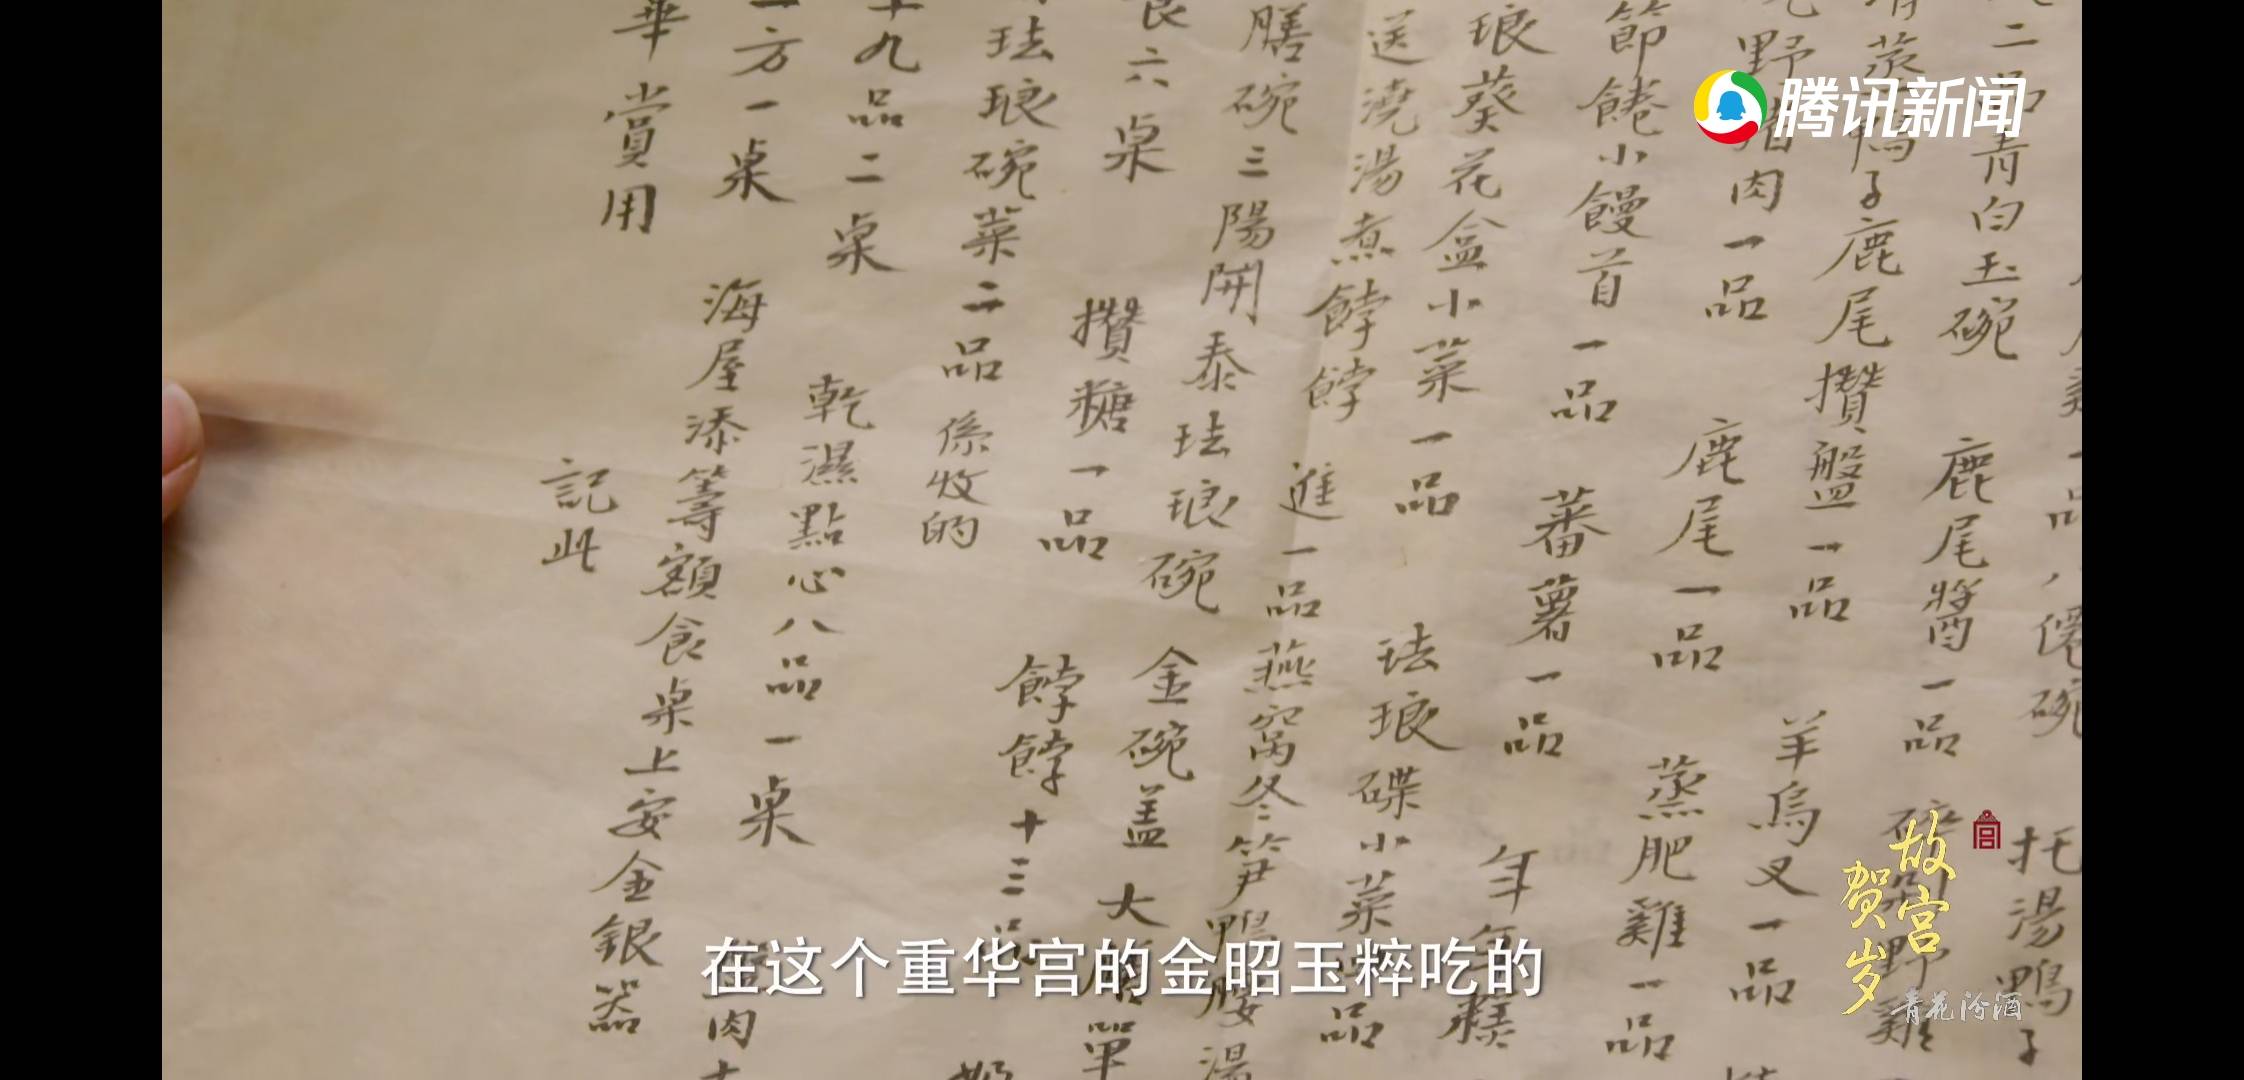 二品青白玉碗 鹿尾醬一品
托湯鴨子
蒸鴨子鹿尾攢盤一品
肉一品 羊烏叉一品
鹿尾一品 蒸肥雞一品
節餑小饅首一品 蕃薯一品 年年糕
琅葵花盒小菜一品 珐琅碟小菜 品
送澆湯煮餑餑 進一品燕窩冬笋鴨腰湯
膳碗三陽開泰珐琅碗 金碗盖 大 單
六桌 攢糖一品 餑餑十三品
珐琅碗菜二品係收的
十九品二桌 乾濕點心八品一桌
一方一桌 海屋添籌額食桌上安金銀器
華賞用 記此
肉
腾讯新闻
故宫
贺岁
青花汾酒
在这个重华宫的金昭玉粹吃的